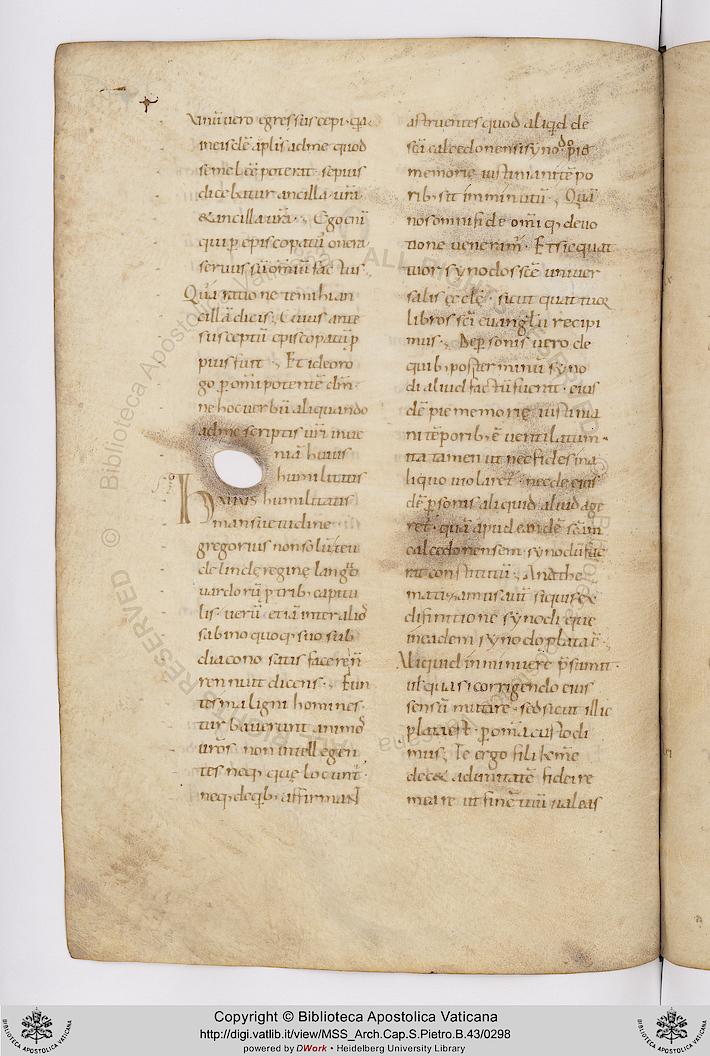 meis dē āplis ad me quod
semel eē poterat sepius
dicebatur ancilla urā
& ancilla urā. Ego enī
qui p episcopatū onera
seruus sū om̄iū factus.
Qua ratione te mihi an
cillā dicis. Cuius ante
susceptū episcopatū p
prius fui. Et ideo ro
go p om̄ipotentē dm̄.
ne hoc uerbū aliquando
ad me scriptis uri inue
niā huius
humilitatis
Huius humilitatis
mansuetudine
gregorius non solū teu
delinde regine lango
uardorū p trib. capitu
lis. uerū etiā inter alios
sabino quoq. suo sub
diacono satis facere n̄
rennuit dicens. Eun
tes maligni homines.
turbauerunt animos
uros. non intellegen
tes neq. que locunt.
neq. de qb. affirmant
astruentes quod aliqd de
sc̄a calcedonensi synodo pie
memorie iustiniani tēpo
rib. sit imminutū. Quā
nos omni fide om̄iq. deuo
tione ueneramr. Et sic quat
tuor synodos scē uniuer
salis ecclē. sicut quattuor
libros sc̄i euanglii recipi
mus. De psonis uero de
quib. post terminū syno
di aliud factū fuerat. eius
dē pie memorie iustinia
ni tēporib. ē uentilatum.
ita tamen ut nec fides in a
liquo uiolaret. nec de eius
dē psonis aliquid aliud age
ret. quā apud eandē sc̄am
calcedonensem synodū fue
rat constitutū. Anathe
matizamus aut siquis ex
difinitione synodi que
in eadem synodo plata ē.
Aliquid inminuere psumit.
uł quasi corrigendo eius
sensū mutare. sed sicut illic
plata est. p om̄ia custodi
mus. Te ergo fili kme
dec& ad unitatē fidei re
meare ut finē tuū ualeas
Copyright © Biblioteca Apostolica Vaticana
http://digi.vatlib.it/view/MSS_Arch.Cap.S.Pietro.B.43/0298
powered by DWork • Heidelberg University Library